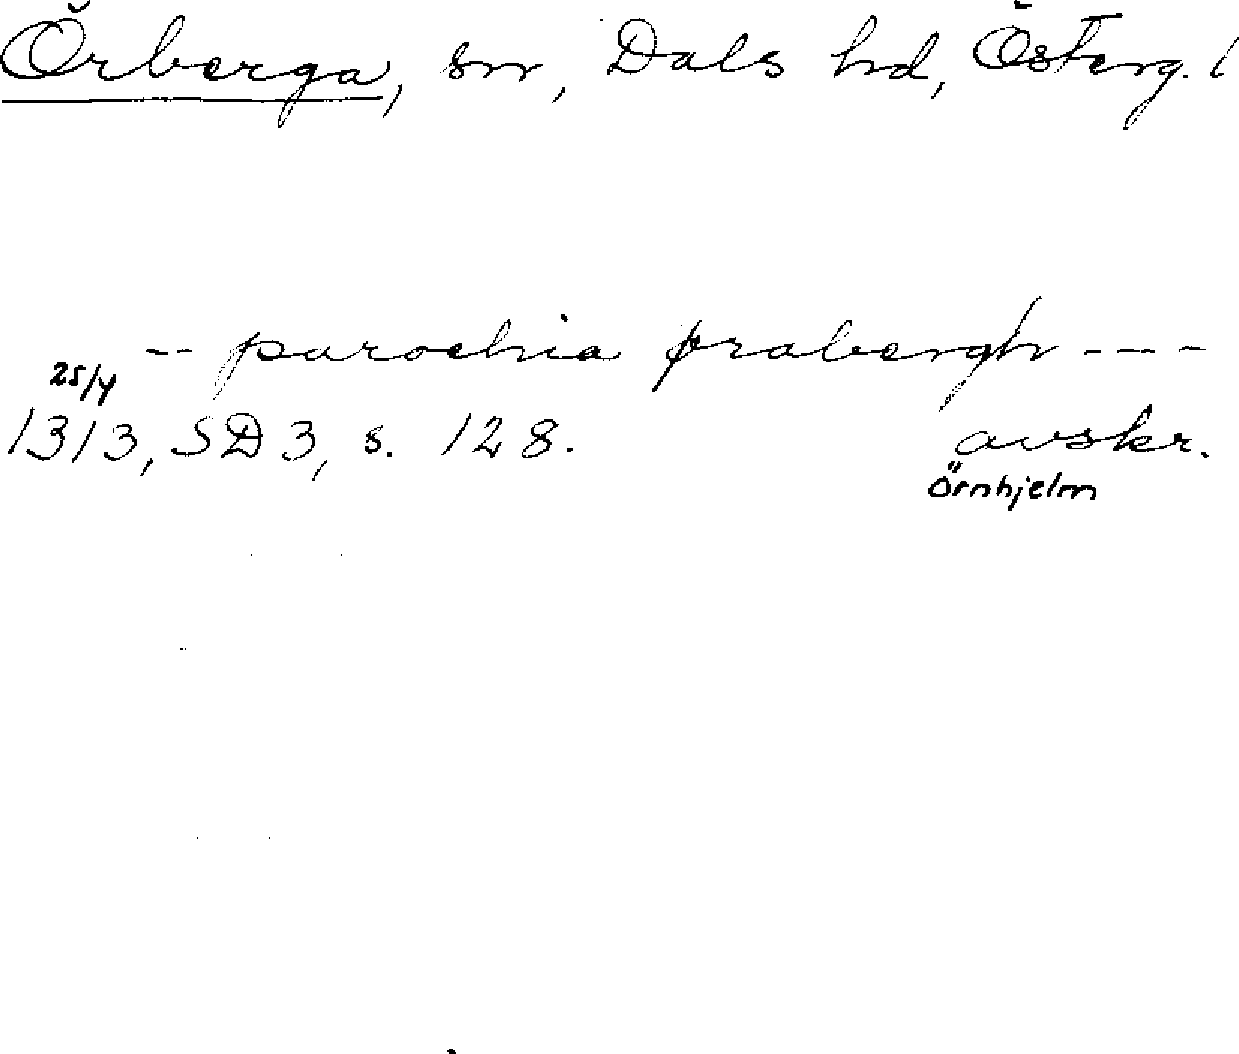 Örberga, sn, Dals hd, Österg. l
-- parochia ørabergh ----
25/4
1313, SD 3, s. 128. avskr.
Örnhjelm